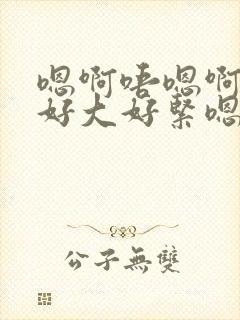 嗯啊唔嗯啊
好大好紧嗯
公子無雙